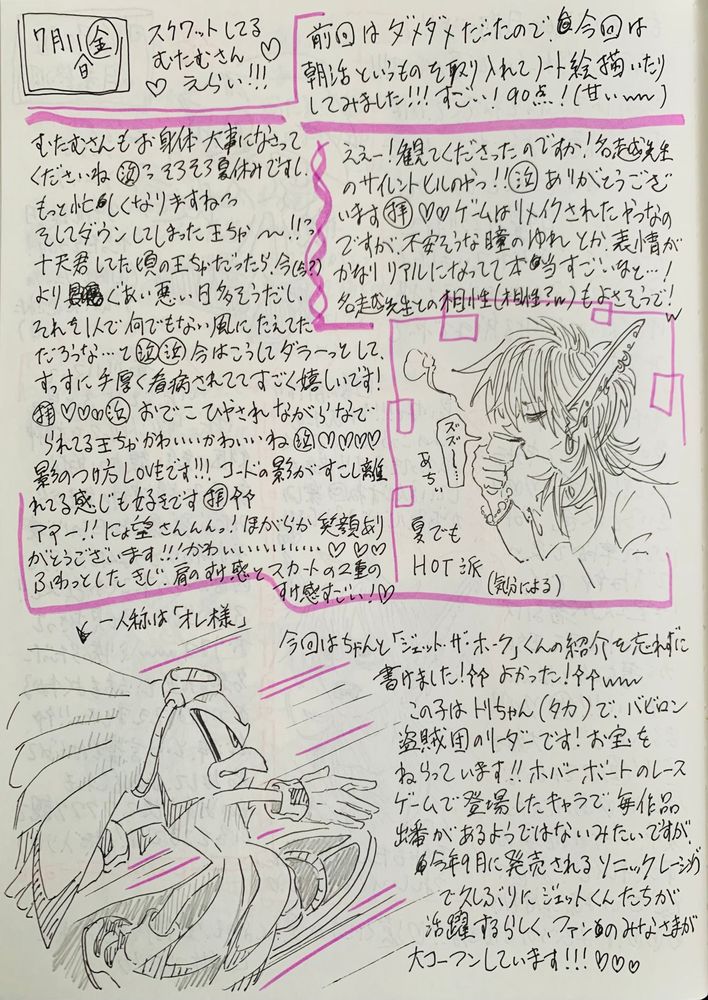 7月11日(金)
スクワットしてる
むたむさん
えらい!!!♡
♡
前回はダメダメだったので今回は
朝活というものを取り入れてノート絵描いたり
してみました!!!すごい!90点!(甘いwww)
むたむさんもお身体大事になさって
くださいね(泣)っそろそろ夏休みですし、
もっと忙しくなりますねっ
そしてダウンしてしまった王ちゃ〜〜!!っ
十天君してた頃の王ちゃだったら、今(?)
よりぐあい悪い日多そうだし
それを1人で何でもない風にたえてた
だろうな…と(泣)(泣)今はこうしてダラーっとして、
すっすに手厚く看病されててすごく嬉しいです!
(拝)♡♡♡(泣)おでこひやされながらなで
られてる王ちゃかわいいかわいいね(泣)♡♡♡♡
影のつけ方LOVEです!!!コードの影がすこし離
れてる感じも好きです(拝)
アアー!!にょ望さんんんっ!ほがらか笑顔あり
がとうございます!!!かわいいいいいいいい♡♡♡
ふわっとしたきじ、肩のすけ感とスカートの2重の
すけ感すごい!♡
ええー!観てくださったのですか!名越先生
のサイレントヒルのやつ!!(泣)ありがとうござ
います(拝)♡♡ゲームはリメイクされたやつなの
ですが、不安そうな瞳のゆれとか、表情が
かなりリアルになってて本当すごいなと…!
名越先生との相性(相性?w)もよさそうで!
w
ズズ〜…
あちぃ
夏でも
HOT派
(気分による)
一人称は「オレ様」
今回はちゃんと「ジェット・ザ・ホーク」くんの紹介を忘れずに
書けました!よかった!www
この子はトリちゃん(タカ)で、バビロン
盗賊団のリーダーです!お宝を
ねらっています!!ホバーボードのレース
ゲームで登場したキャラで、毎作品
出番があるようではないみたいですが、
今年9月に発売されるソニックレーシング
で久しぶりにジェットくんたちが
活躍するらしく、ファンのみなさまが
大コーフンしています!!!♡♡♡